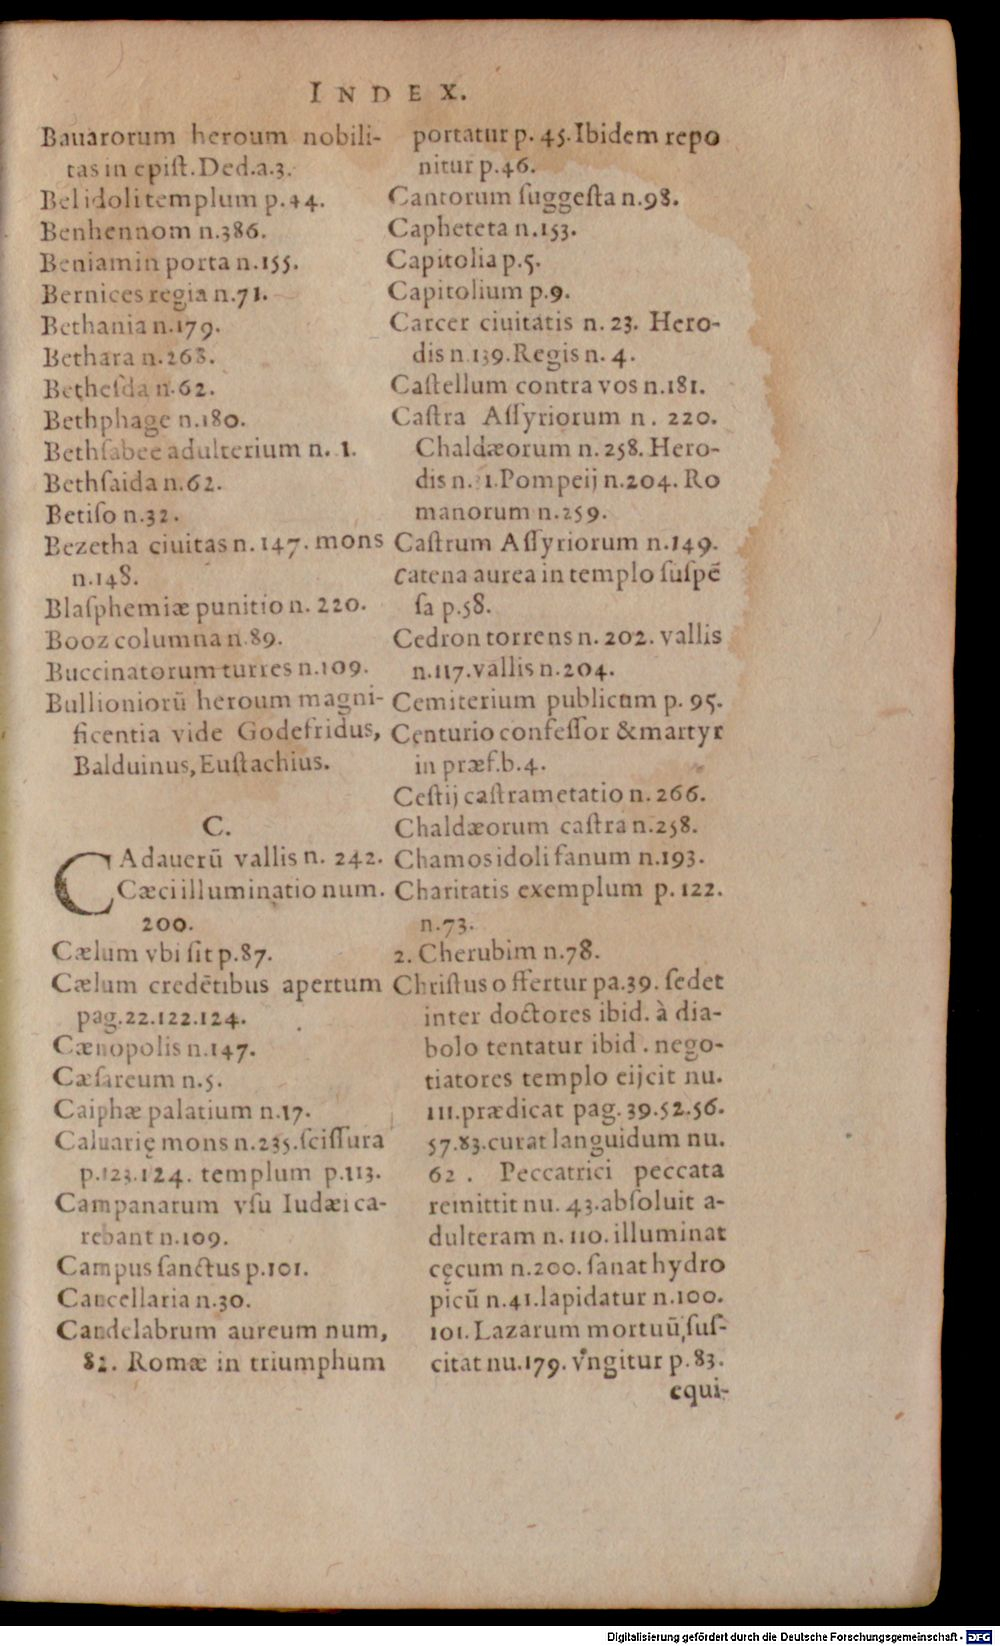 INDEX.
Bauarorum heroum nobili-
tas in epiſt. Ded.a.3.
Bel idoli templum p.44.
Benhennom n.386.
Beniamin porta n.155.
Bernices regia n.71.
Bethania n.179.
Bethara n.268.
Betheſda n.62.
Bethphage n.180.
Bethſabee adulterium n. 1.
Bethſaida n.62.
Betiſo n.32.
Bezetha ciuitas n. 147. mons
n.148.
Blaſphemiæ punitio n. 220.
Booz columna n.89.
Buccinatorum turres n.109.
Bullioniorū heroum magni-
ficentia vide Godefridus,
Balduinus, Euſtachius.
C.
CAdauerū vallis n. 242.
Cæci illuminatio num.
200.
Cælum vbi ſit p.87.
Cælum credētibus apertum
pag.22.122.124.
Cænopolis n.147.
Cæſareum n.5.
Caiphæ palatium n.17.
Caluarię mons n.235.ſciſſura
p.123.124. templum p.113.
Campanarum vſu Iudæi ca-
rebant n.109.
Campus ſanctus p.101.
Cancellaria n.30.
Candelabrum aureum num,
82. Romæ in triumphum
portatur p. 45. Ibidem repo
nitur p.46.
Cantorum ſuggeſta n.98.
Capheteta n.153.
Capitolia p.5.
Capitolium p.9.
Carcer ciuitatis n. 23. Hero-
dis n.139.Regis n. 4.
Caſtellum contra vos n.181.
Caſtra Aſſyriorum n. 220.
Chaldæorum n. 258. Hero-
dis n. 1.Pompeij n.204. Ro
manorum n.259.
Caſtrum Aſſyriorum n.149.
Catena aurea in templo ſuſpē
ſa p.58.
Cedron torrens n. 202. vallis
n.117.vallis n.204.
Cemiterium publicum p. 95.
Centurio confeſſor & martyr
in præf.b.4.
Ceſtij caſtrametatio n. 266.
Chaldæorum caſtra n.258.
Chamos idoli fanum n.193.
Charitatis exemplum p. 122.
n.73.
2. Cherubim n.78.
Chriſtus offertur pa.39. ſedet
inter doctores ibid. à dia-
bolo tentatur ibid. nego-
tiatores templo eijcit nu.
111.prædicat pag. 39.52.56.
57.83.curat languidum nu.
62. Peccatrici peccata
remittit nu. 43.abſoluit a-
dulteram n. 110. illuminat
cęcum n.200. ſanat hydro
picū n.41.lapidatur n.100.
101. Lazarum mortuū ſuſ-
citat nu.179. vngitur p.83.
equi-
Digitalisierung gefördert durch die Deutsche Forschungsgemeinschaft - DFG